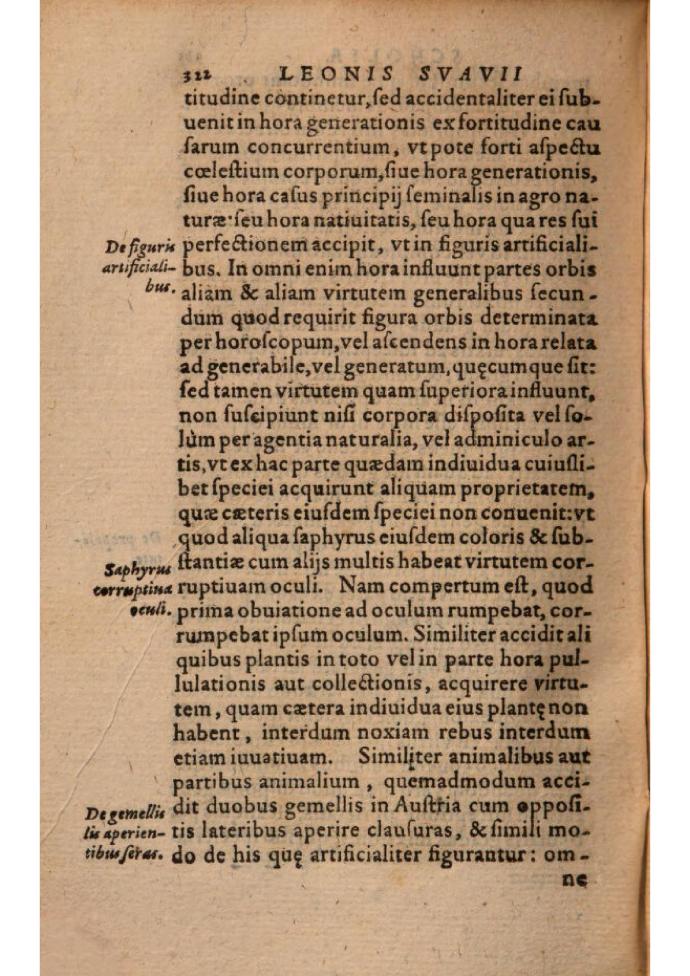 322 LEONIS SVAVII
titudine continetur, sed accidentaliter ei sub-
uenit in hora generationis ex fortitudine cau
sarum concurrentium, vt pote forti aspectu
cœlestium corporum, siue hora generationis,
siue hora casus principij seminalis in agro na-
turæ: seu hora natiuitatis, seu hora qua res sui
De figuris
artificiali-
bus.
perfectionem accipit, vt in figuris artificiali-
bus. In omni enim hora influunt partes orbis
aliam & aliam virtutem generalibus secun-
dum quod requirit figura orbis determinata
per horoscopum, vel ascendens in hora relata
ad generabile, vel generatum, quęcumque sit:
sed tamen virtutem quam superiora influunt,
non suscipiunt nisi corpora disposita vel so-
lùm per agentia naturalia, vel adminiculo ar-
tis, vt ex hac parte quædam indiuidua cuiusli-
bet speciei acquirunt aliquam proprietatem,
quæ cæteris eiusdem speciei non conuenit: vt
quod aliqua saphyrus eiusdem coloris & sub-
stantiæ cum alijs multis habeat virtutem cor-
Saphyrus
corruptiua
oculi.
ruptiuam oculi. Nam compertum est, quod
prima obuiatione ad oculum rumpebat, cor-
rumpebat ipsum oculum. Similiter accidit ali
quibus plantis in toto vel in parte hora pul-
lulationis aut collectionis, acquirere virtu-
tem, quam cætera indiuidua eius plantę non
habent, interdum noxiam rebus interdum
etiam iuuatiuam. Similiter animalibus aut
partibus animalium, quemadmodum acci-
De gemellis
lis aperien-
tibus seras.
dit duobus gemellis in Austria cum opposi-
tis lateribus aperire clausuras, & simili mo-
do de his quę artificialiter figurantur: om-
ne